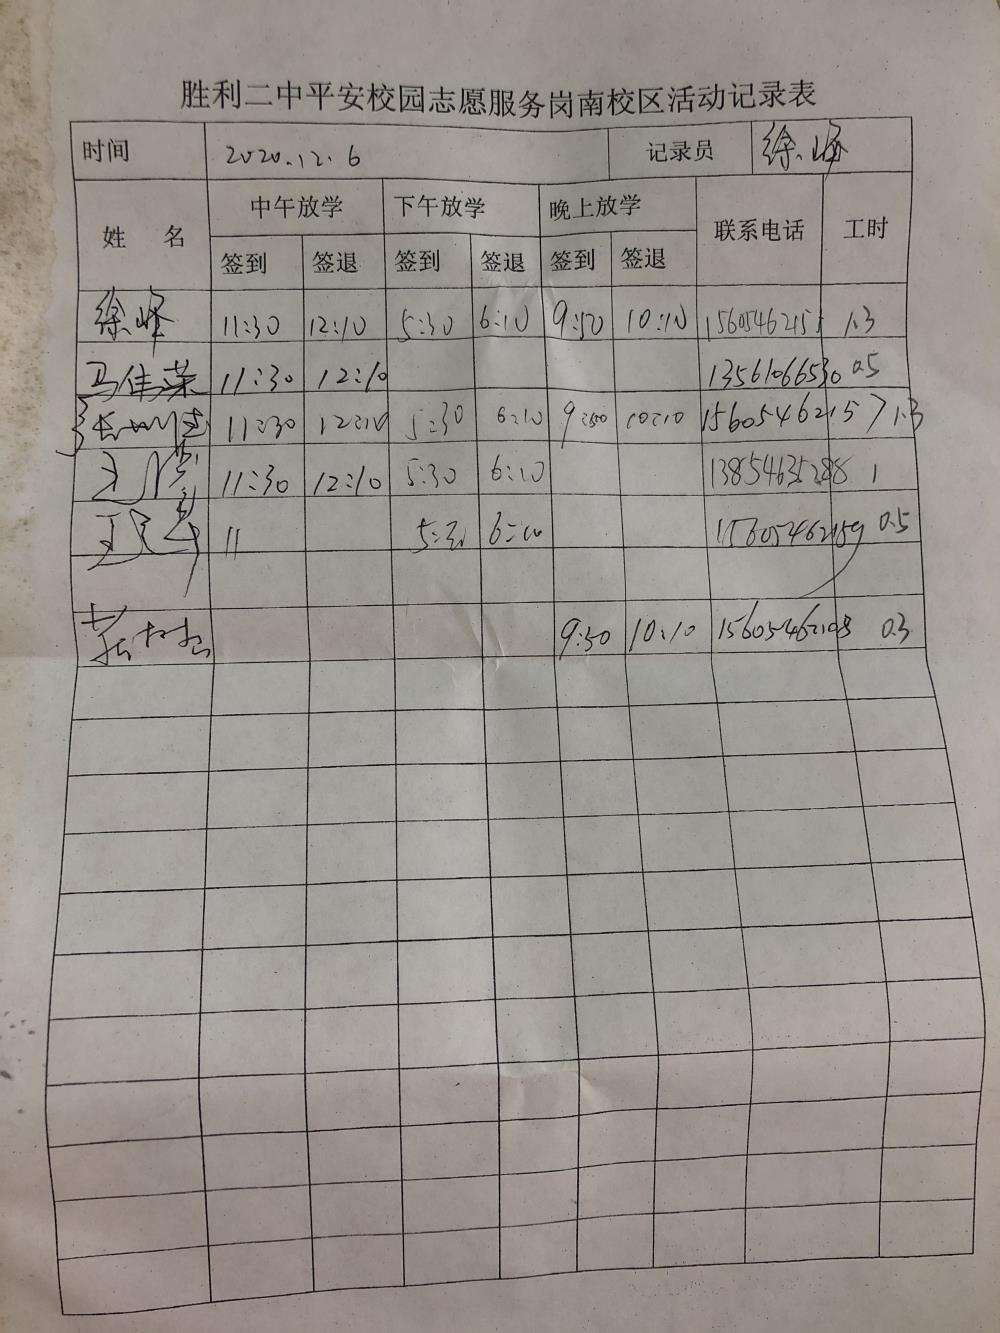 胜利二中平安校园志愿服务岗南校区活动记录表
时间 2020.12.6 记录员 徐峰
姓 名 中午放学 下午放学 晚上放学 联系电话 工时
签到 签退 签到 签退 签到 签退
徐峰 11:30 12:10 5:30 6:10 9:50 10:10 1.3
马伟荣 11:30 12:10 13561066530 0.5
11:30 12:10 5:30 6:10 9:50 10:10 15605462157 1.3
11:30 12:10 5:30 6:10 13854635288 1
11 5:30 6:10 15605462159 0.5
9:50 10:10 15605462108 0.3